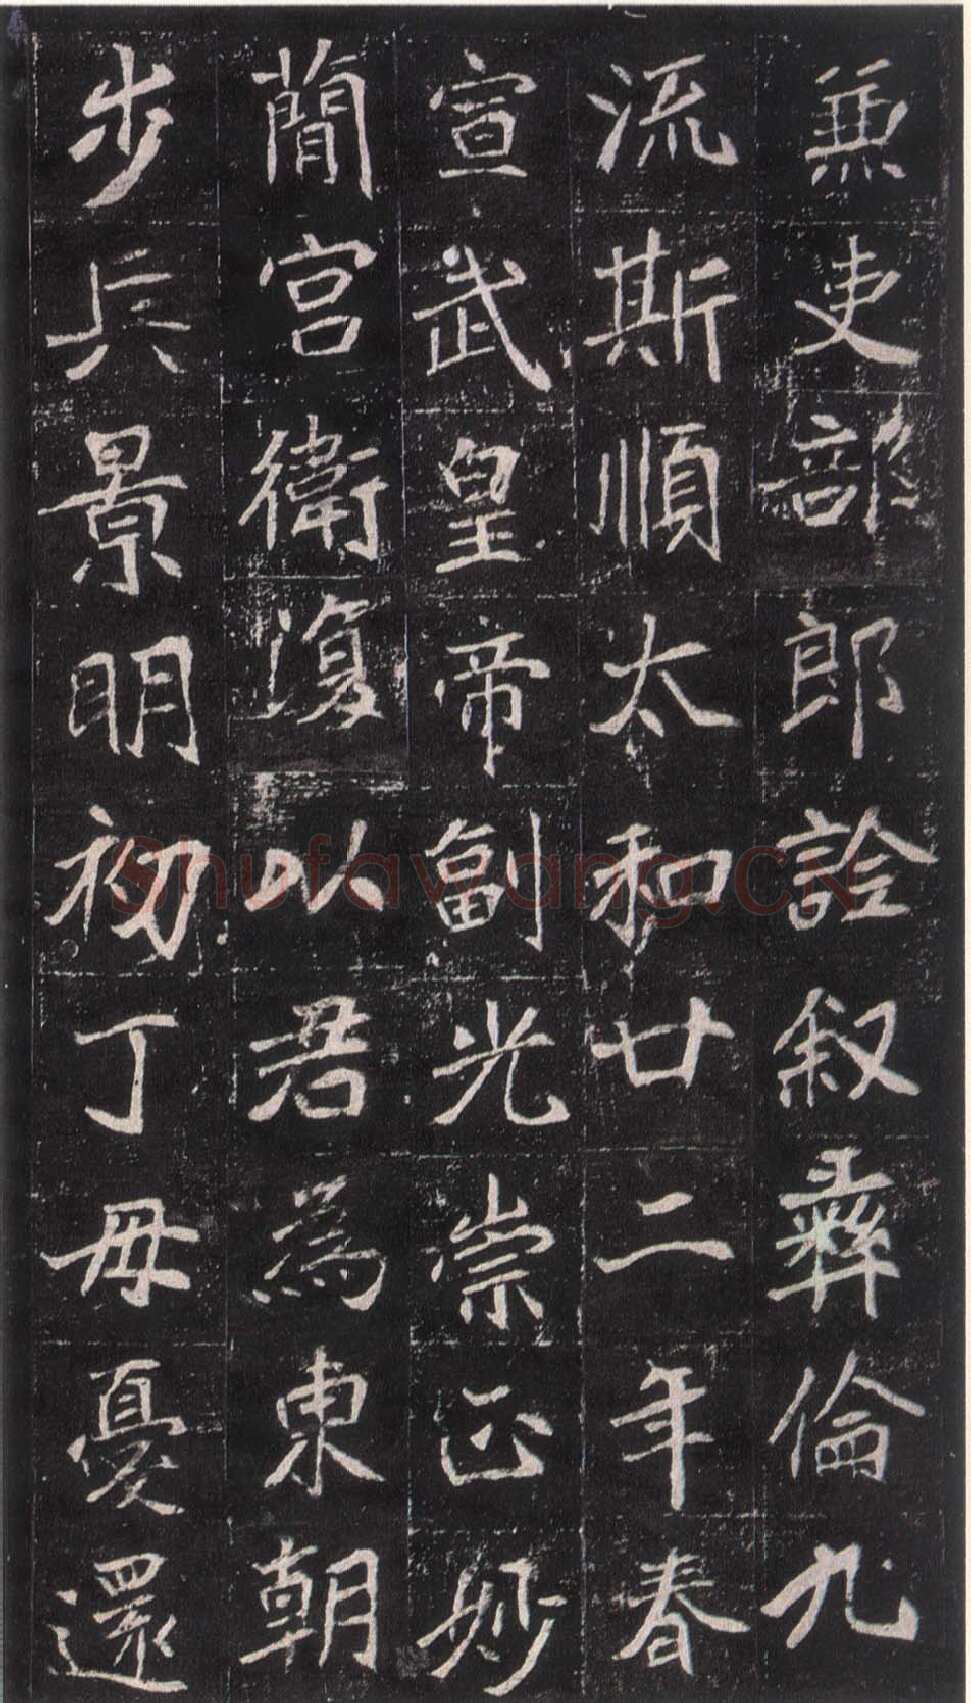 兼吏部郎詮叙彝倫九
流斯順太和廿二年春
宣武皇帝副光崇正妙
簡宮衛復以君為東朝
步兵景明初丁母憂還
Shufawang.CN